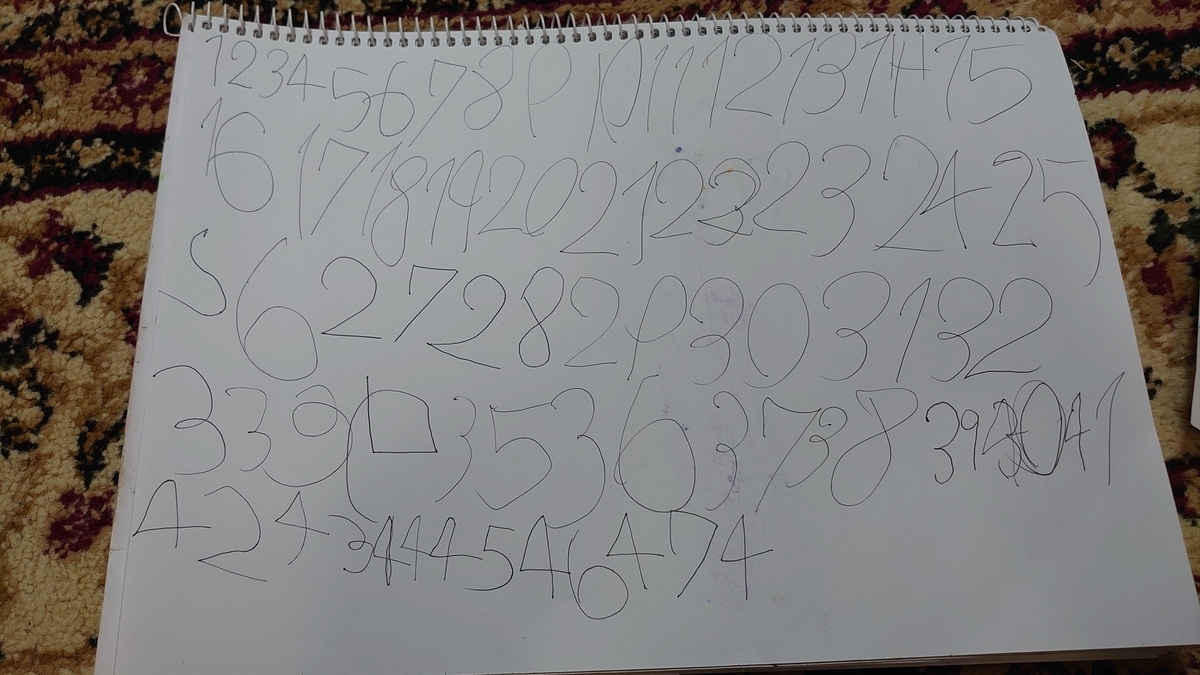 1 2 3 4 5 6 7 8 9 10 11 12 13 14 15
16 17 18 19 20 21 22 23 24 25
27 28 29 30 31 32
33 35 36 37 38 39 40 41
42 43 44 45 46 47 4